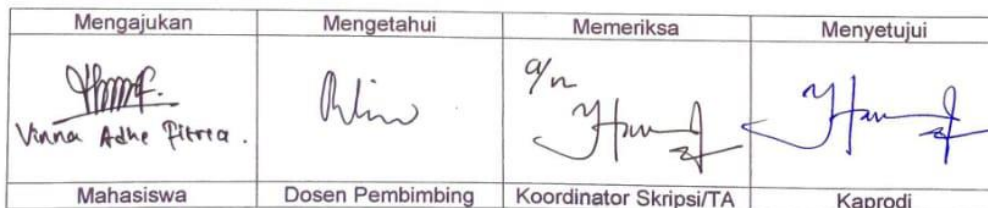 Mengajukan Mengetahui Memeriksa Menyetujui
a/n
Vinna Adhe Fitria.
Mahasiswa Dosen Pembimbing Koordinator Skripsi/TA Kaprodi